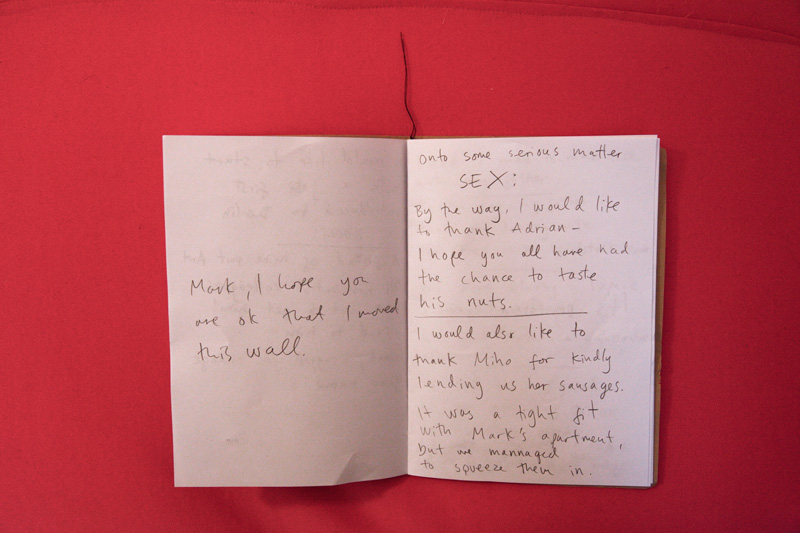 Mark, I hope you
are ok that I moved
this wall.
Onto some serious matter
SEX:
By the way, I would like
to thank Adrian –
I hope you all have had
the chance to taste
his nuts.
I would also like to
thank Miho for kindly
lending us her sausages.
It was a tight fit
with Mark's apartment,
but we mannaged
to squeeze them in.